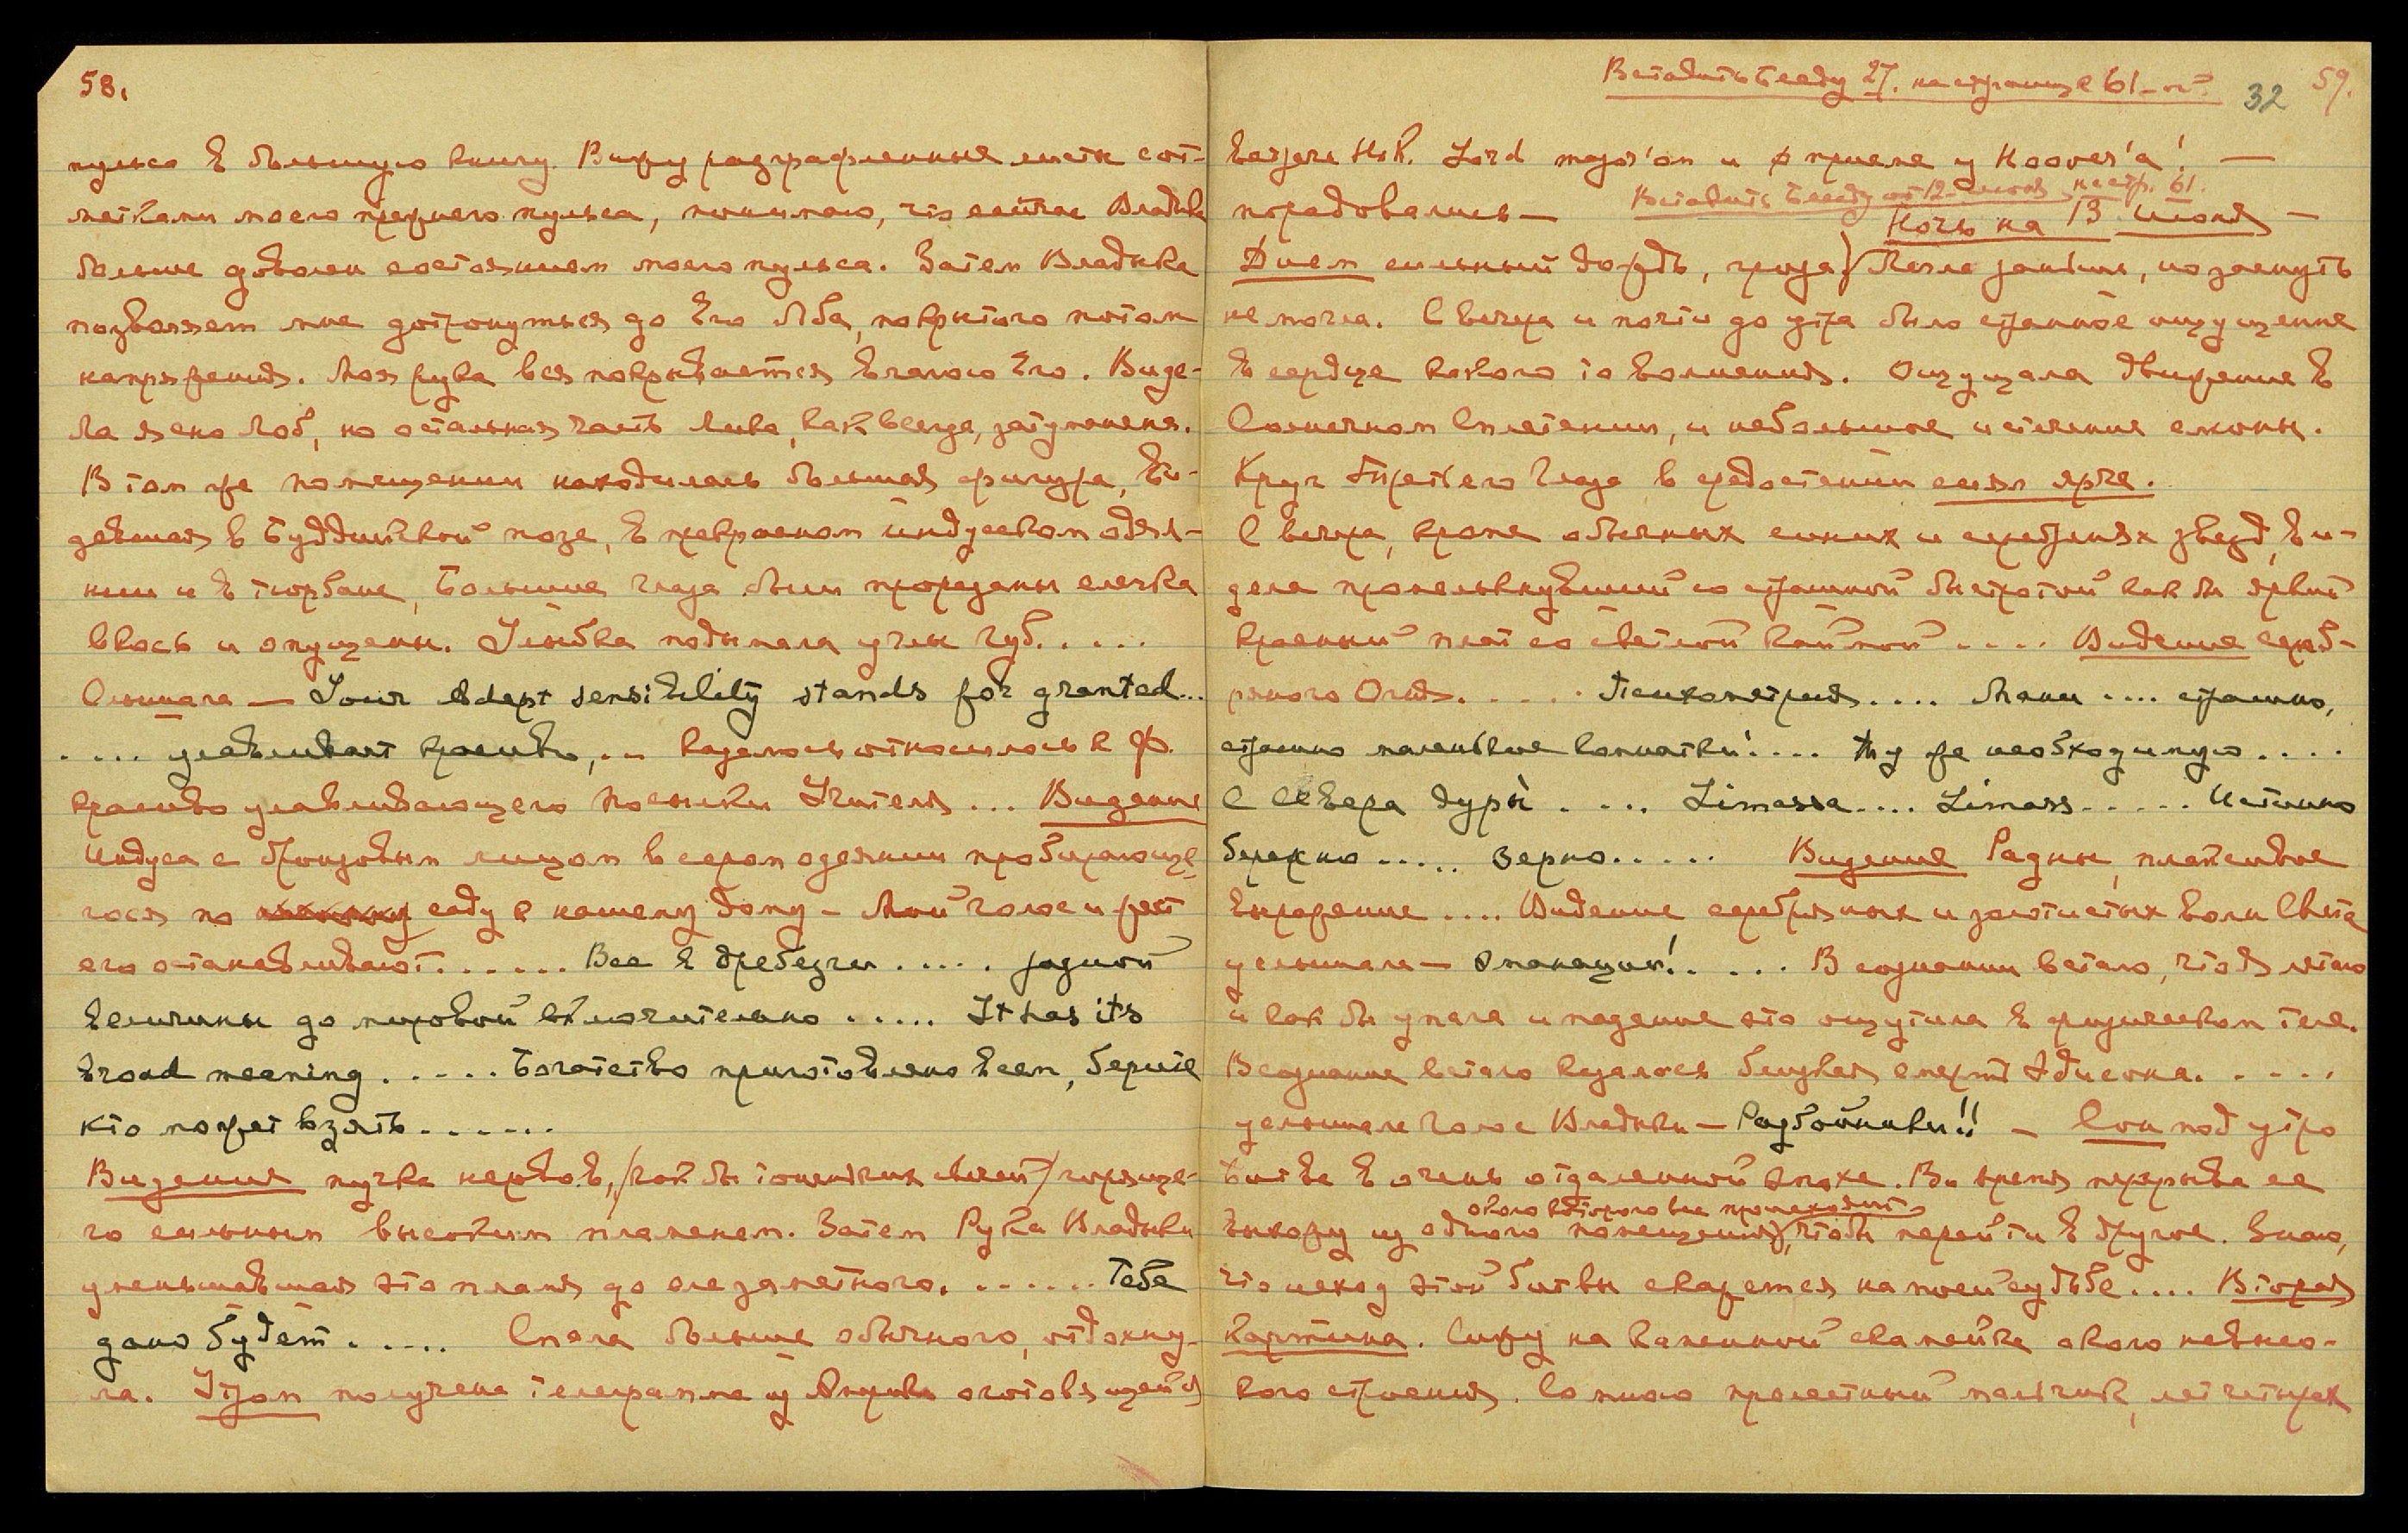 58.
пульса в большую книгу. Вижу разграфленные листы с от-
метками моего прежнего пульса, понимаю, что сейчас Владыка
больше доволен состоянием моего пульса. Затем Владыка
позволяет мне дотронуться до Его Лба, покрытого потом
напряжения. Моя рука вся покрывается влагою Его. Виде-
ла ясно Лоб, но остальная часть Лика, как всегда, затуманена.
В том же помещении находилась большая фигура, си-
девшая в Буддийской позе, в прекрасном индусском одея-
нии и в тюрбане, Большие глаза были прорезаны слегка
вкось и опущены. Улыбка подымала углы губ.....
Слышала — Your adept sensibility stands for granted...
.... улавливает красиво,... казалось относилось к Ф.
красиво улавливающего Посылки Учителя... Видение
Индуса с бронзовым лицом в сером одеянии пробирающе-
гося по саду к нашему дому – Мой голос и жест
его останавливают...... Все в дребезги..... задной
величины до мировой включительно..... It has its
broad meaning..... Богатство приготовлено всем, берите
кто может взять......
Видение пучка нервов, /как бы тоненьких свечей/ горяще-
го сильным высоким пламенем. Затем Рука Владыки
уменьшавшая это пламя до еле заметного....... Тебе
дано будет..... Спала больше обычного, отдохну-
ла. Утром получена телеграмма из Америки о готовящейся
Вставить Беседу 27. на странице 61-ой
32 59.
встрече Н.К. Lord major'ом и о приеме у Hoover'а! —
порадовались — Вставить Беседу от 12-июня на стр. 61.
Ночь на 13 июня —
Днем сильный дождь, гроза/ Легла заживо, но заснуть
не могла. С вечера и почти до утра было странное ощущение
в сердце какого то волнения. Ощущала движение в
Солнечном Сплетении, и небольшое истечение слюны.
Круг Третьего Глаза в средостении сиял ярче.
С вечера, кроме обычных синих и серебряных звезд, ви-
дела промелькнувший со страшной быстротой как бы яркий
красный плат со светлой каймой.... Видение сереб-
ряного Огня..... Психометрия.... Мани.... страшно,
страшно маленькие комнатки!.... Ту же необходимую....
С Севера дуры.... Limassa.... Limass..... Истинно
бережно..... Зерно..... Видение Радны, плаксивое
выражение.... Видение серебряных и золотистых волн Света
услышала — эманации!..... В сознании встало, что я летаю
и как бы упала и падение это ощутила в физическом теле.
В сознание встало казалось близкая смерть Эдисона.....
услышала голос Владыки — Разбойники!! – Сон под утро
Битва в очень отдаленной эпохе. Во время перерыва ее
около которого все происходит
выхожу из одного помещения, чтобы перейти в другое. Знаю,
что исход этой битвы скажется на моей судьбе.... Вторая
картина. Сижу на каменной скамейке около невысо-
кого строения. Со мною прелестный мальчик, лет четырех